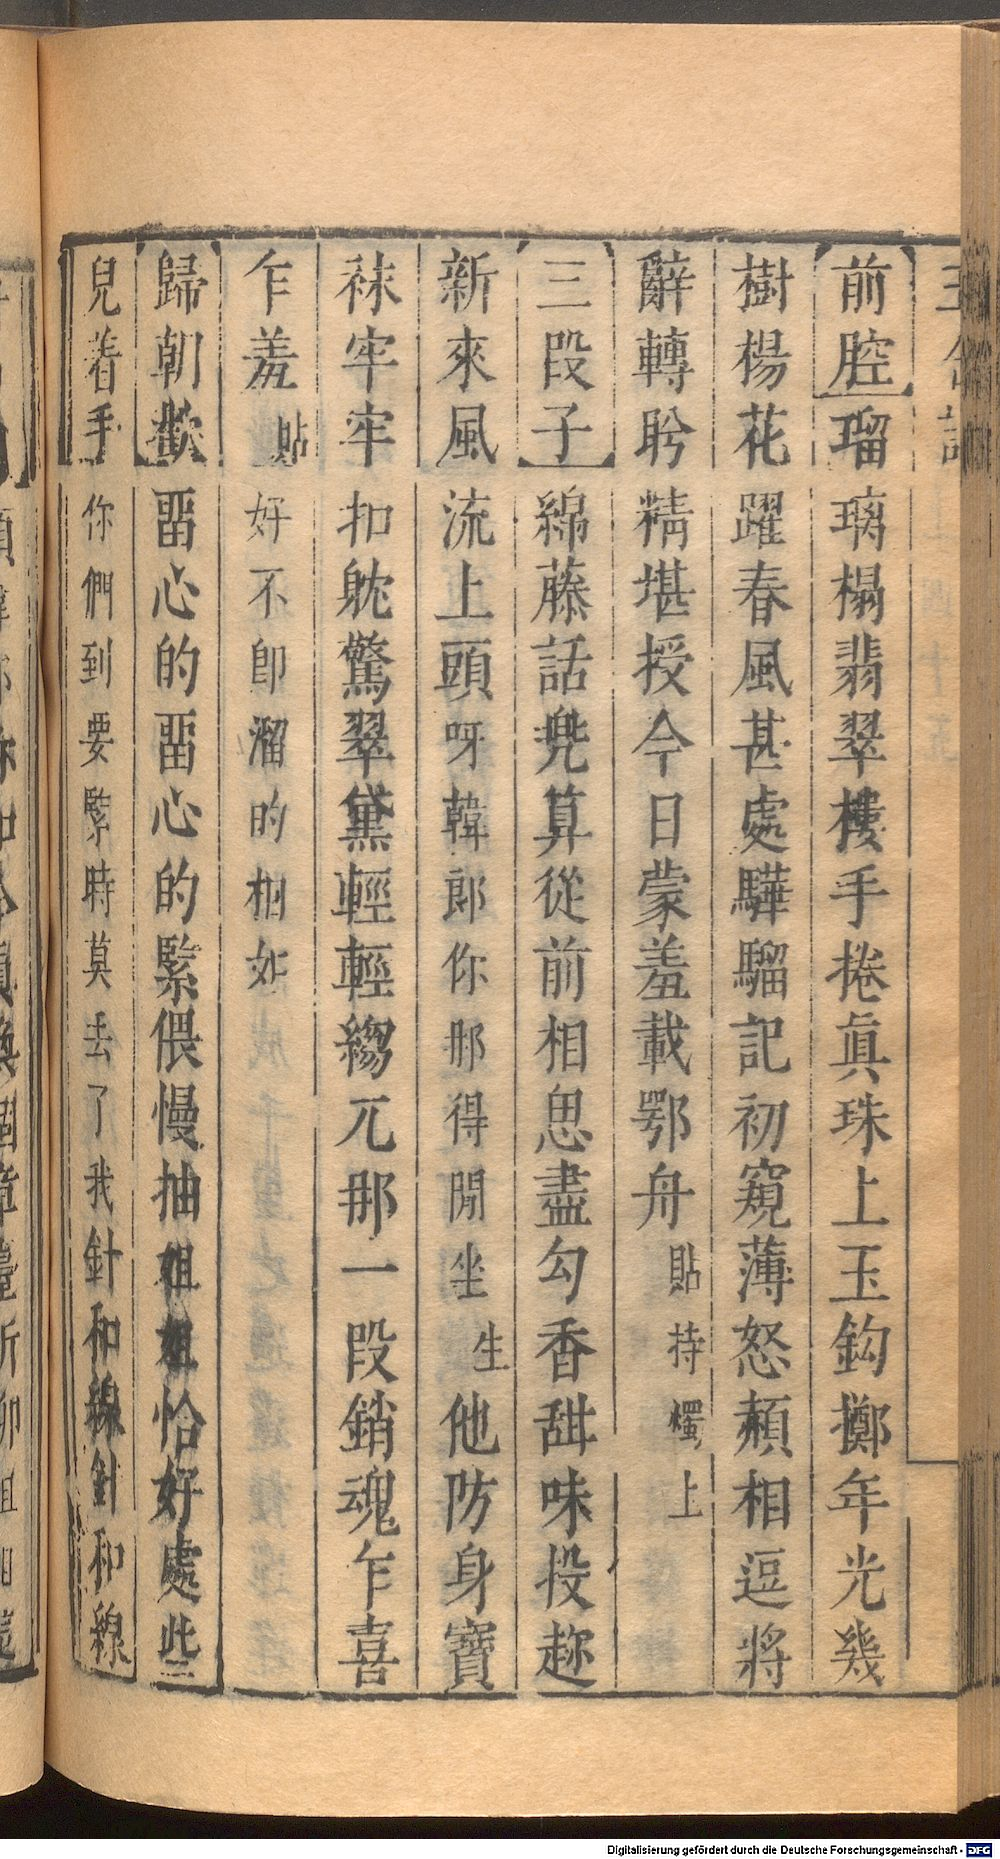 前腔瑠璃榻翡翠樓手捲眞珠上玉鈎擲年光幾
樹楊花躍春風甚處驊騮記初窺薄怒頳相逗將
辭轉肹精堪授今日蒙羞載鄂舟貼持燭上
三段子綿藤話兠算從前相思盡勾香甜味投趂
新來風流上頭呀韓郎你那得閒坐生他防身寶
袜牢牢扣躭驚翠黛輕輕縐兀那一段銷魂乍喜
乍羞貼好不卽溜的相如
歸朝歡畱心的畱心的緊偎慢抽姐姐恰好處些
兒着手你們到要緊時莫丟了我針和線針和線
Digitalisierung gefördert durch die Deutsche Forschungsgemeinschaft - DFG